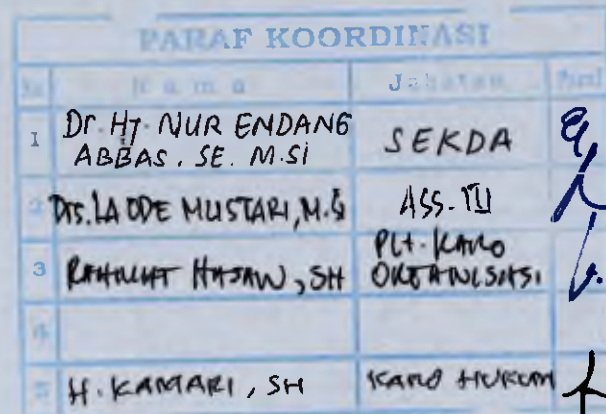 PARAF KOORDINASI
No Nama Jabatan Paraf
1 Dr. Hj. NUR ENDANG SEKDA
ABBAS. SE. M.Si
2 Drs. LA ODE MUSTARI, M.Si ASS. III
3 RAHMAT HASAN, SH Plt. KARO
ORGANISASI
4
5 H. KAMARI, SH KARO HUKUM